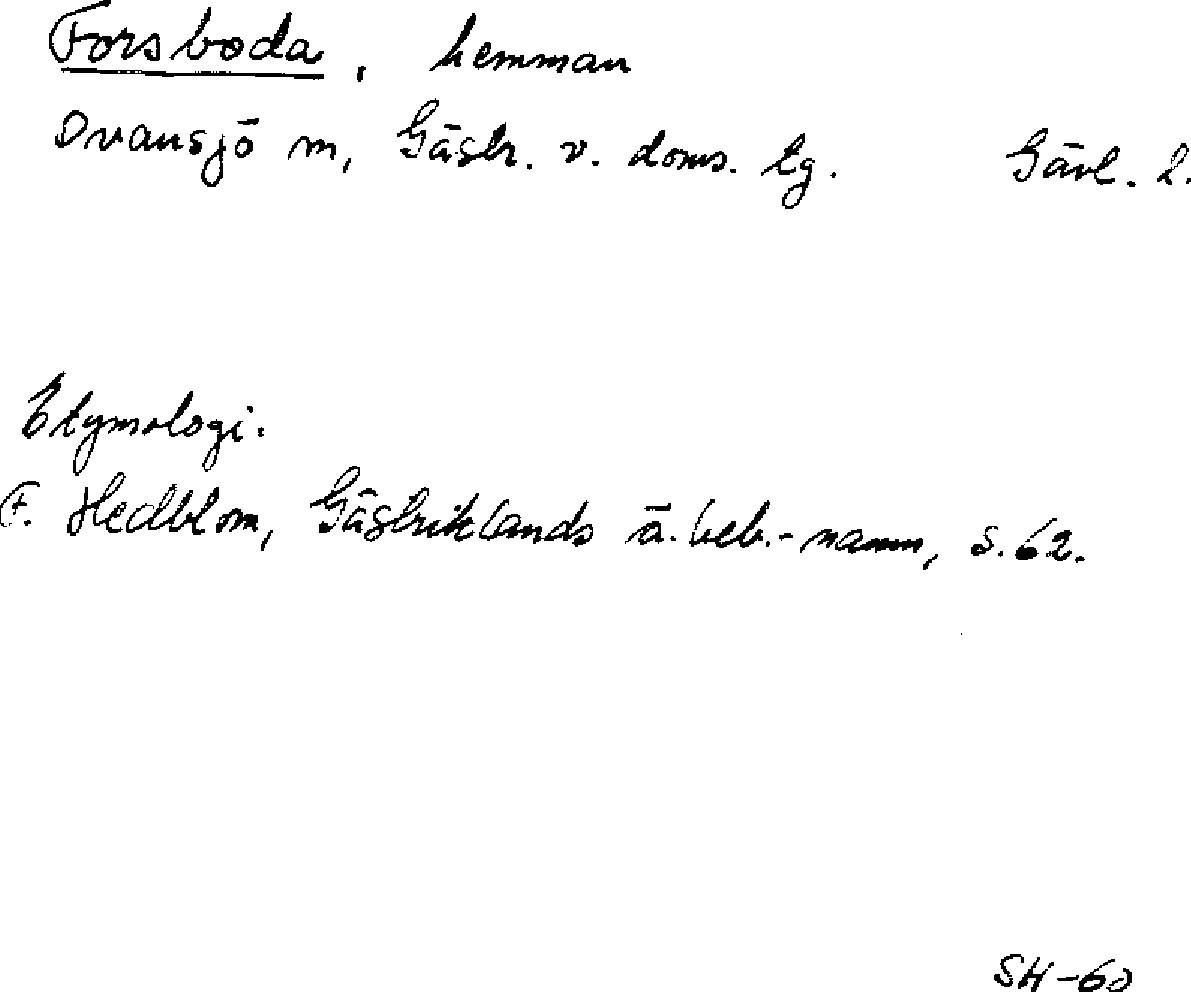 Forsboda, hemman
Ovansjö sn, Gästr. v. doms. tg. Gävl. l.
Etymologi.
F. Hedblom, Gästriklands ä. beb.-namn, s. 62.
SH-60